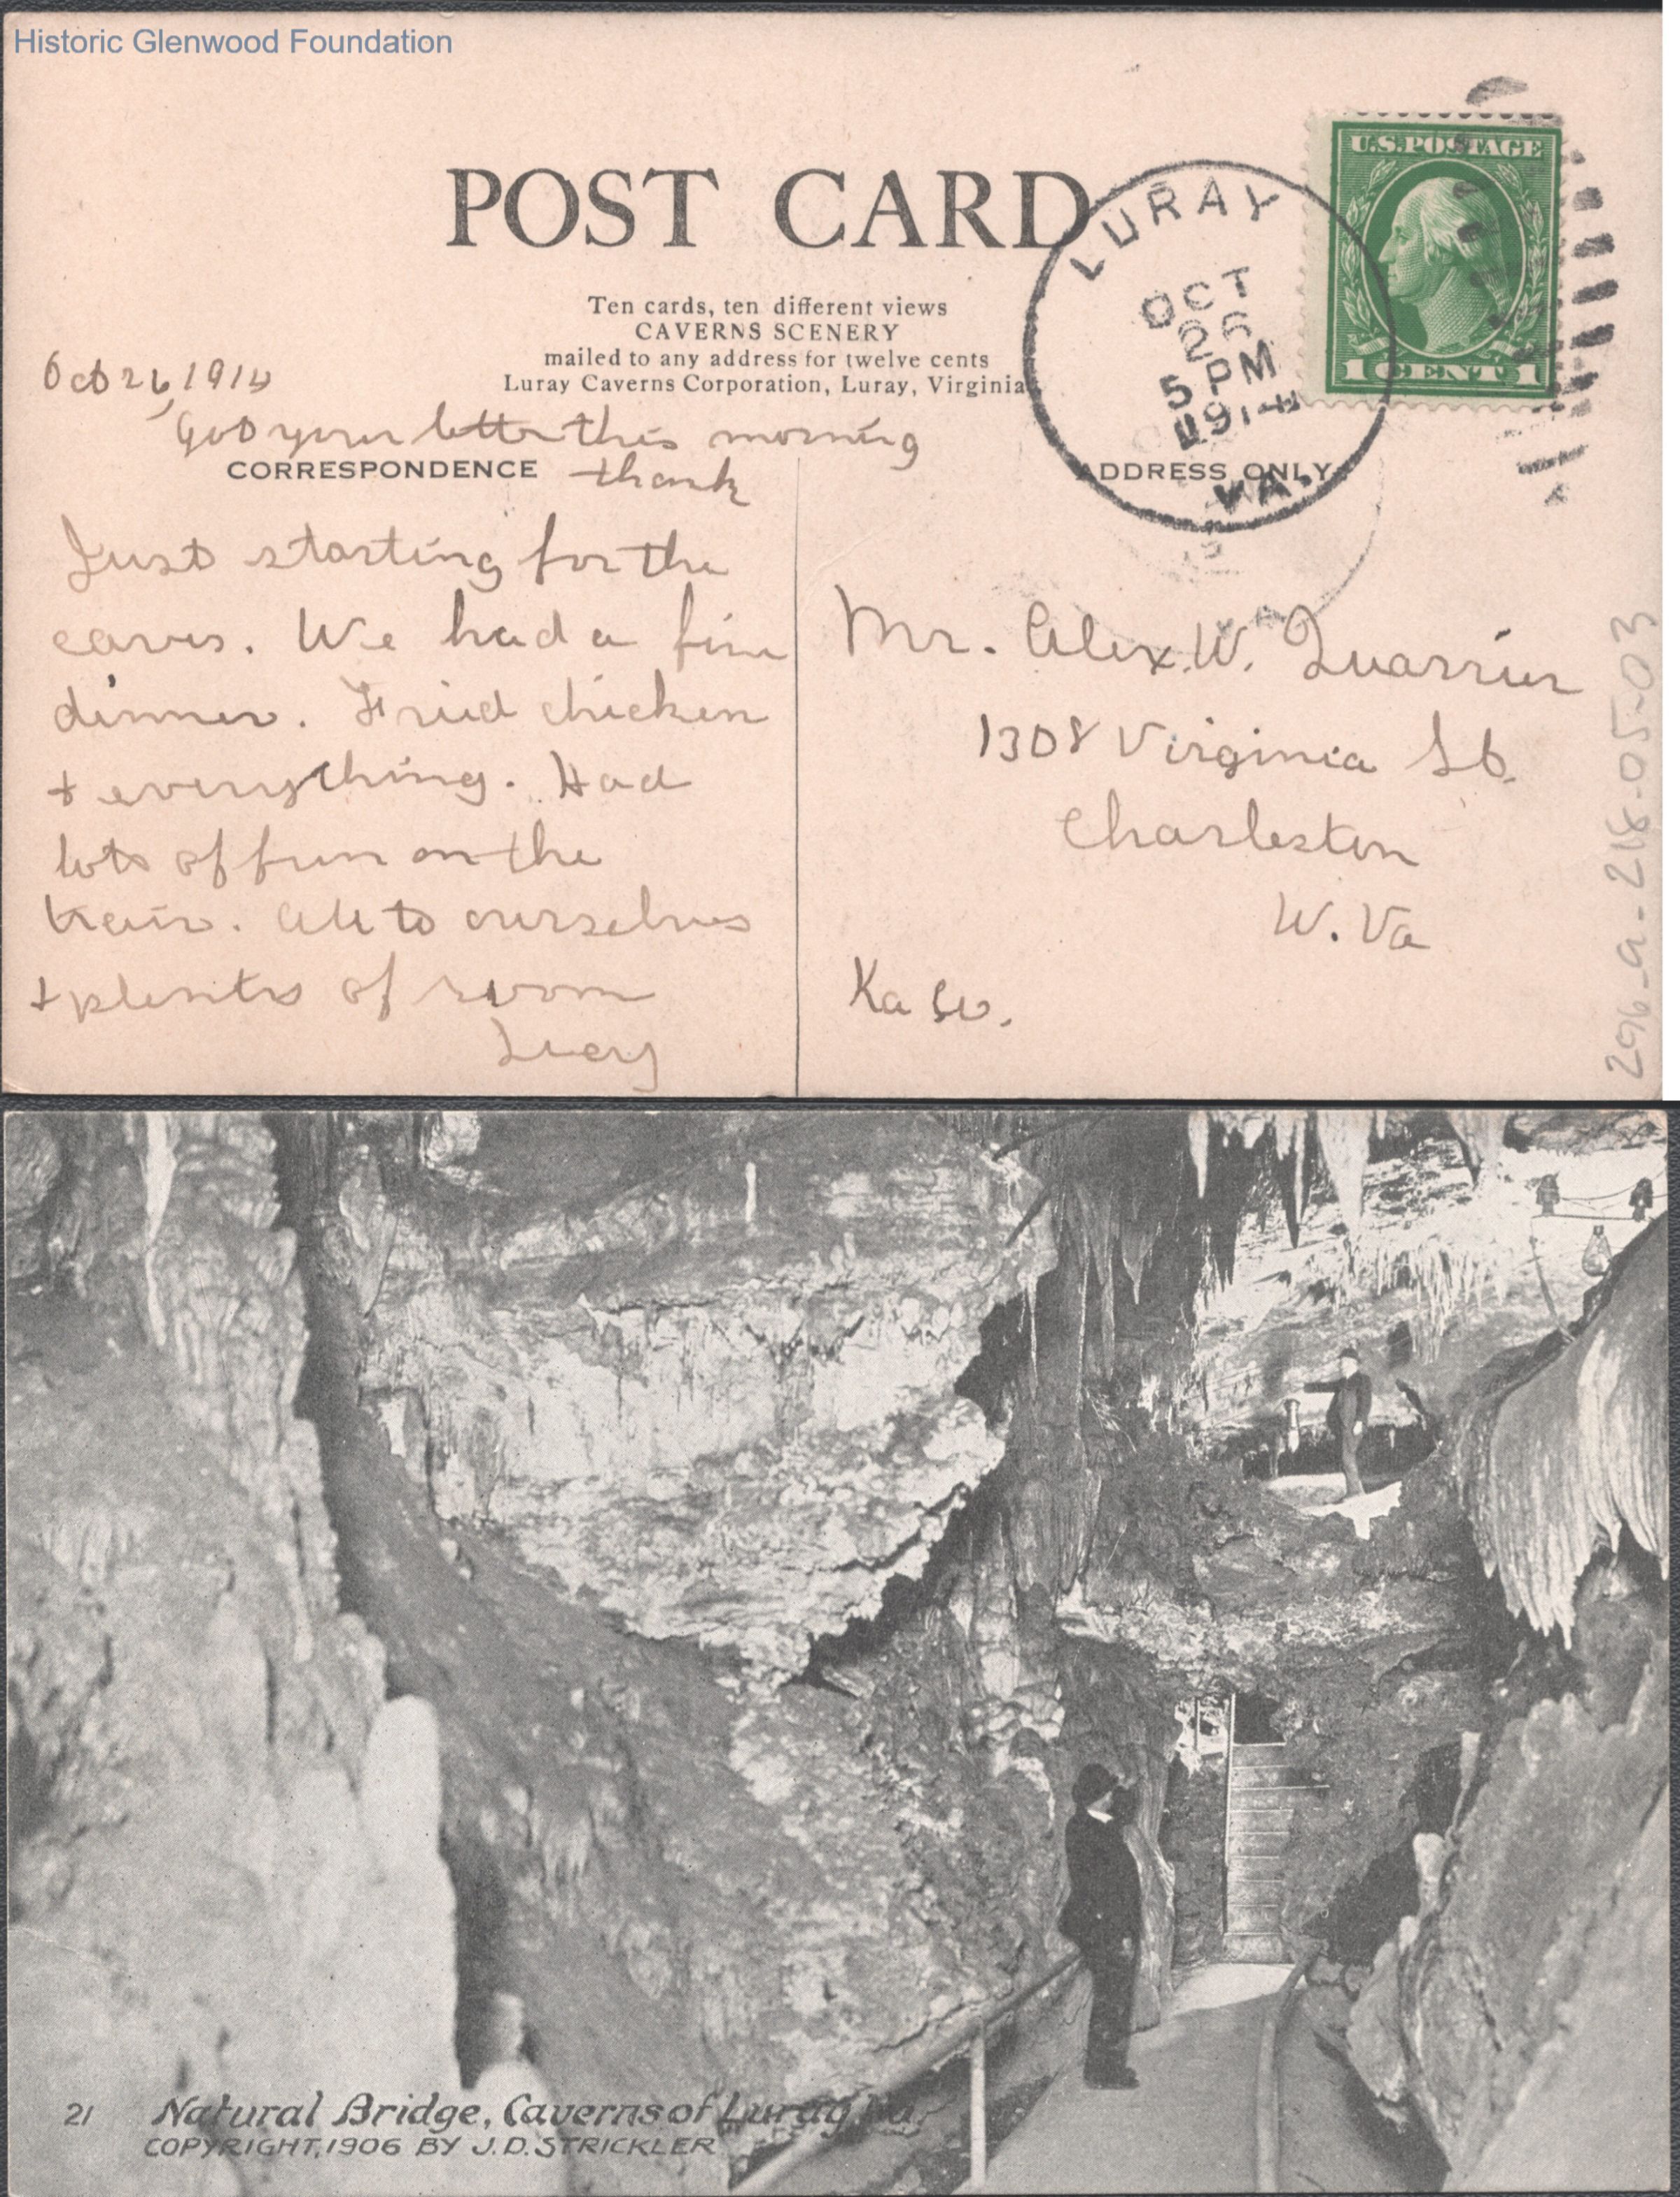 Historic Glenwood Foundation
POST CARD
Ten cards, ten different views
CAVERNS SCENERY
mailed to any address for twelve cents
Luray Caverns Corporation, Luray, Virginia
LURAY
OCT
26
5 PM
1914
VA.
U.S. POSTAGE
1 CENT 1
Oct 26, 1914
Got your letter this morning
CORRESPONDENCE
thank
ADDRESS ONLY
Just starting for the
caves. We had a fine
dinner. Fried chicken
+ everything. Had
lots of fun on the
train. All to ourselves
+ plenty of room
Lucy
Mr. Alex. W. Quarrier
1308 Virginia St.
Charleston
W. Va
Ka
296-a-218-05-03
21 Natural Bridge, Caverns of Luray Va.
COPYRIGHT, 1906 BY J.D. STRICKLER